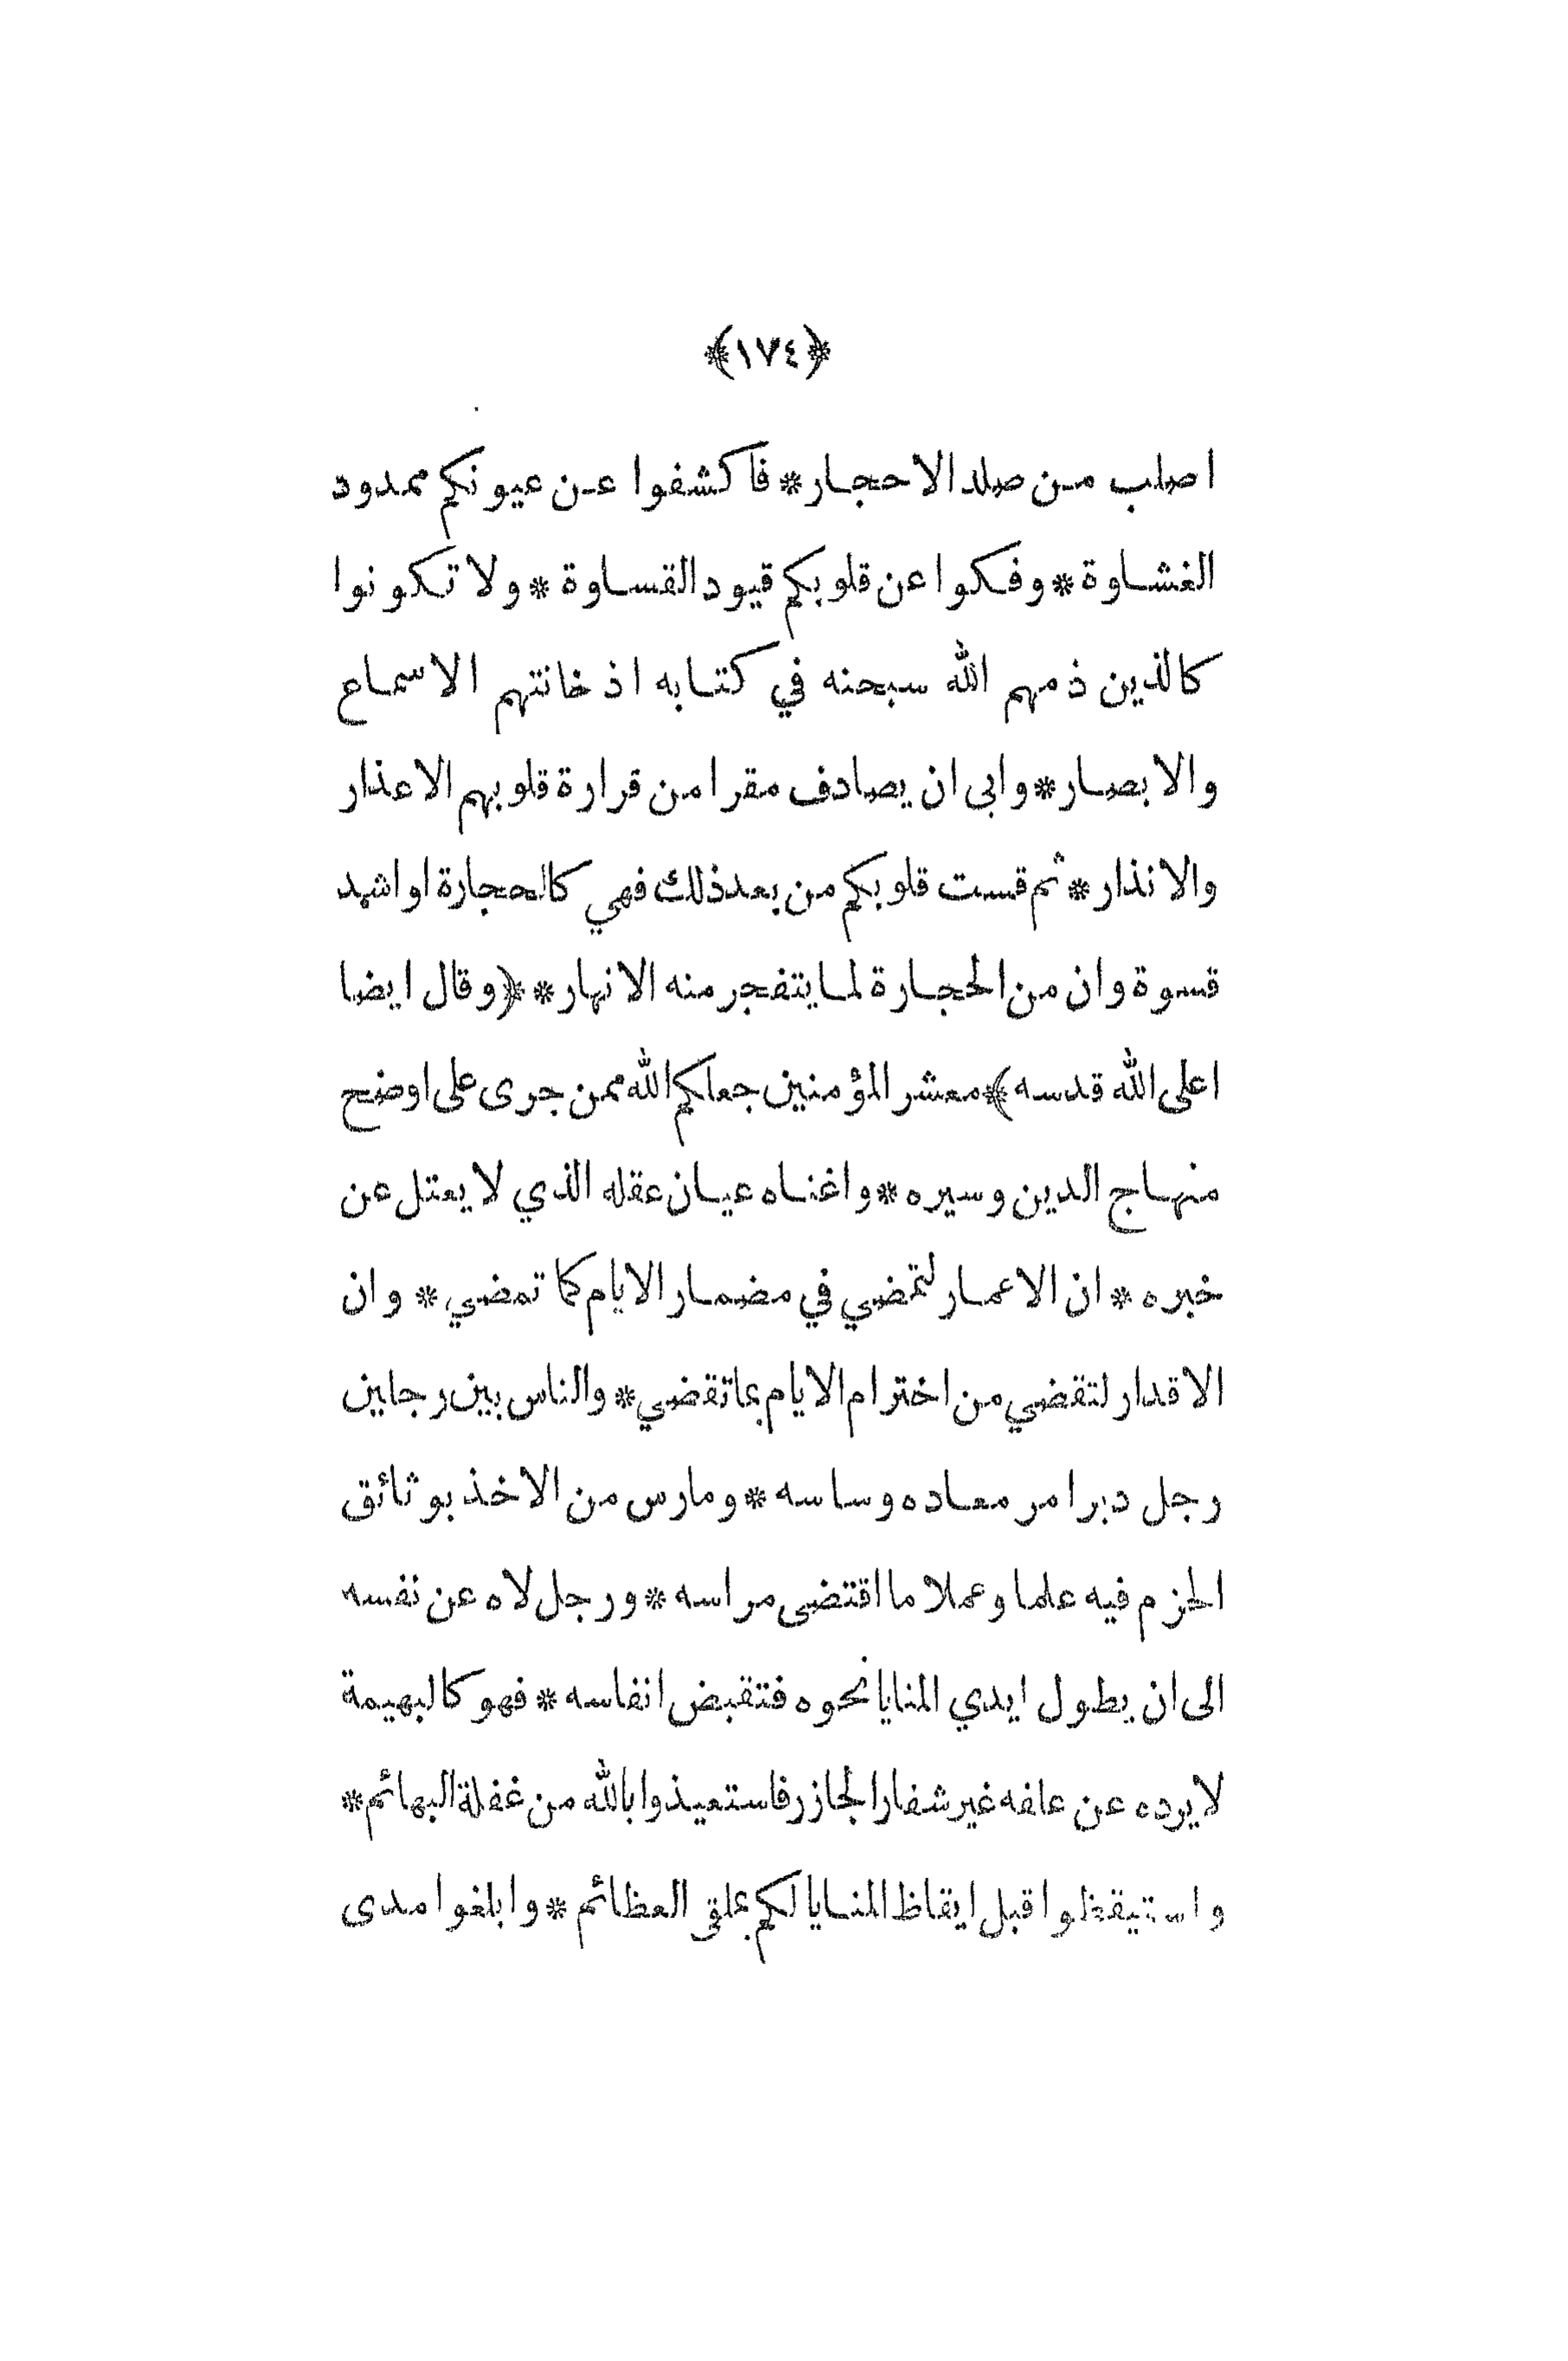 ﴿١٧٤﴾
اصلب من صلد الاحجار * فاكشفوا عن عيونكم ممدود
الغشاوة * وفكوا عن قلوبكم قيود القساوة * ولا تكونوا
كالذين ذمهم الله سبحنه في كتابه اذ خانتهم الاسماع
والابصار * وابى ان يصادف مقرا من قرارة قلوبهم الاعذار
والانذار * ثم قست قلوبكم من بعد ذلك فهي كالحجارة او اشد
قسوة وان من الحجارة لما يتفجر منه الانهار * ﴿وقال ايضا
اعلى الله قدسه﴾ معشر المؤمنين جعلكم الله ممن جرى على اوضح
منهاج الدين وسيره * واغناه عيان عقله الذي لا يعتل عن
خبره * ان الاعمار لتمضي في مضمار الايام كما تمضي * وان
الاقدار لتقضي من اخترام الايام بما تقضي * والناس بين رجلين
رجل دبر امر معاده وساسه * ومارس من الاخذ بوثائق
الحزم فيه علما وعملا ما اقتضى مراسه * ورجل لاه عن نفسه
الى ان يطول ايدي المنايا نحوه فتقبض انفاسه * فهو كالبهيمة
لا يرده عن علفه غير شفار الجازر فاستعيذوا بالله من غفلة البهائم *
واستيقظوا قبل ايقاظ المنايا لكم بملقى العظائم * وابلغوا مدى